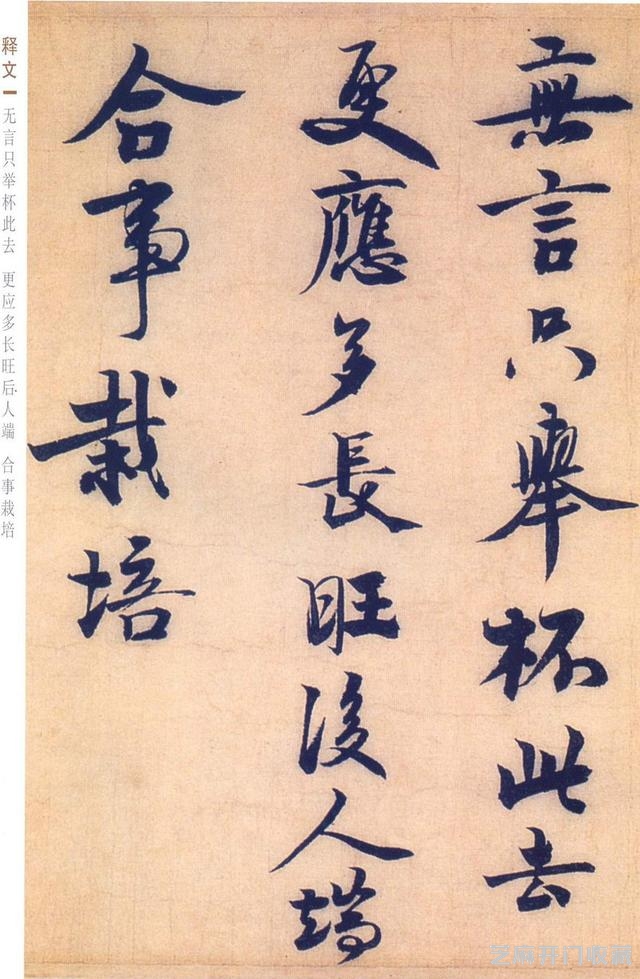 無言只舉杯此去
更應多長旺後人端
合事栽培
释文
无言只举杯此去 更应多长旺后人端 合事栽培
芝麻开门收藏